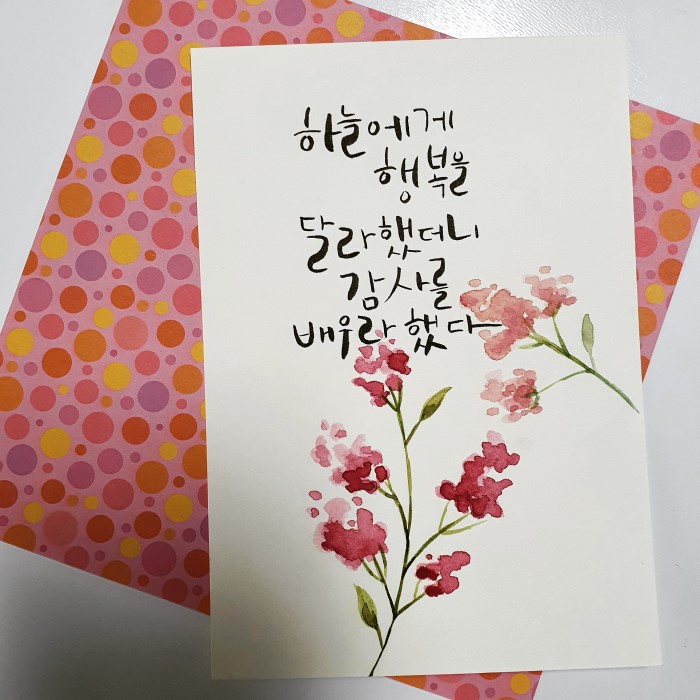 하늘에게
행복을
달라했더니
감사를
배우라 했다